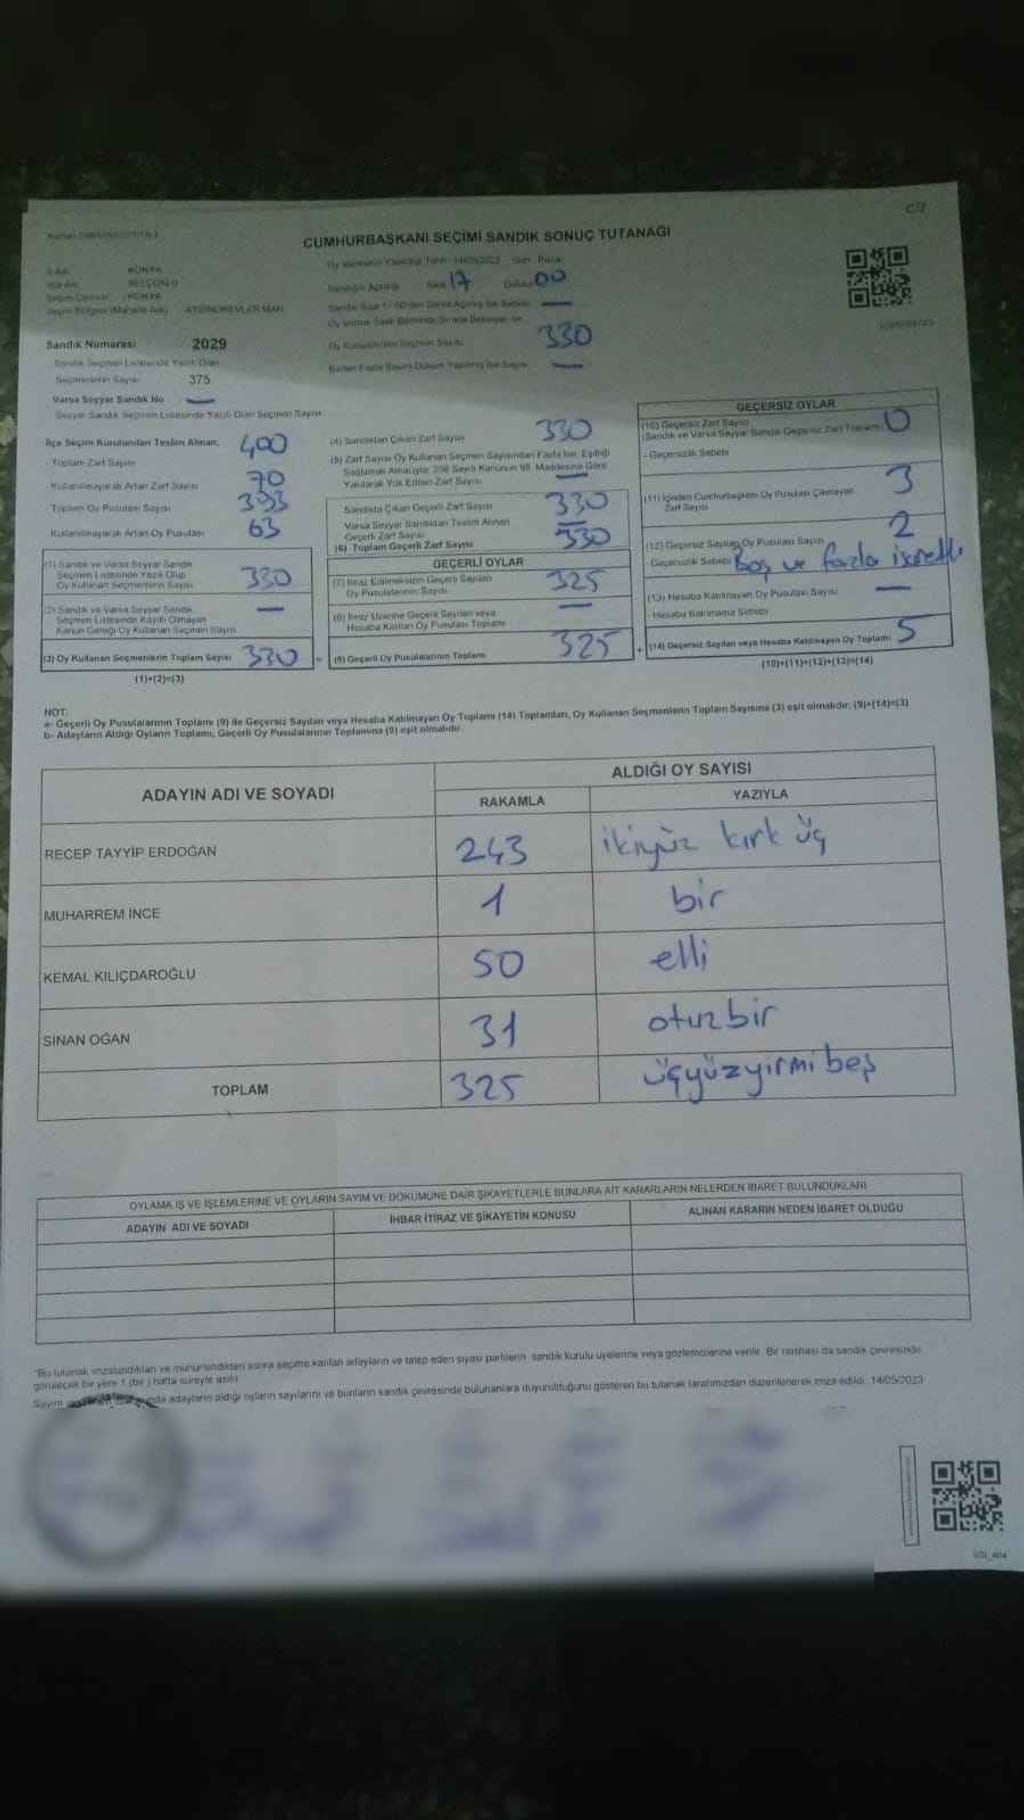 C/2
CUMHURBAŞKANI SEÇİMİ SANDIK SONUÇ TUTANAĞI
Oy Vermenin Yapıldığı Tarih : 14/05/2023 Gün : Pazar
KONYA
SELÇUKLU
KONYA
AYDINLIKEVLER MAH.
Sandığın Açıldığı Saat: 17 Dakika: 00
—
Oy Kullandırılan Seçmen Sayısı 330
—
Sandık Numarası 2029
Sandık Seçmen Listesinde Yazılı Olan
Seçmenlerin Sayısı 375
Varsa Seyyar Sandık No —
Seyyar Sandık Seçmen Listesinde Yazılı Olan Seçmen Sayısı
İlçe Seçim Kurulundan Teslim Alınan; 400
- Toplam Zarf Sayısı
- Kullanılmayarak Artan Zarf Sayısı 70
- Toplam Oy Pusulası Sayısı 393
Kullanılmayarak Artan Oy Pusulası 63
(1) Sandık ve Varsa Seyyar Sandık
Seçmen Listesinde Yazılı Olup
Oy Kullanan Seçmenlerin Sayısı 330
(2) Sandık ve Varsa Seyyar Sandık
Seçmen Listesinde Kayıtlı Olmayan
Kanun Gereği Oy Kullanan Seçmen Sayısı —
(3) Oy Kullanan Seçmenlerin Toplam Sayısı 330
(1)+(2)=(3)
(4) Sandıktan Çıkan Zarf Sayısı 330
(5) Zarf Sayısı Oy Kullanan Seçmen Sayısından Fazla ise, Eşitliği
Sağlamak Amacıyla; 298 Sayılı Kanunun 98. Maddesine Göre
Yakılarak Yok Edilen Zarf Sayısı —
Sandıkta Çıkan Geçerli Zarf Sayısı 330
Varsa Seyyar Sandıktan Teslim Alınan
Geçerli Zarf Sayısı —
(6) Toplam Geçerli Zarf Sayısı 330
GEÇERLİ OYLAR
(7) İtiraz Edilmeksizin Geçerli Sayılan
Oy Pusulalarının Sayısı 325
(8) İtiraz Üzerine Geçerli Sayılan veya
Hesaba Katılan Oy Pusulası Toplamı —
(9) Geçerli Oy Pusulalarının Toplamı 325
GEÇERSİZ OYLAR
(10) Geçersiz Zarf Sayısı
(Sandık ve Varsa Seyyar Sandık Geçersiz Zarf Toplamı) 0
- Geçersizlik Sebebi
(11) İçinden Cumhurbaşkanı Oy Pusulası Çıkmayan
Zarf Sayısı 3
(12) Geçersiz Sayılan Oy Pusulası Sayısı 2
Geçersizlik Sebebi Boş ve fazla işaretli
(13) Hesaba Katılmayan Oy Pusulası Sayısı —
- Hesaba Katılmama Sebebi
(14) Geçersiz Sayılan veya Hesaba Katılmayan Oy Toplamı 5
(10)+(11)+(12)+(13)=(14)
NOT:
a- Geçerli Oy Pusulalarının Toplamı (9) ile Geçersiz Sayılan veya Hesaba Katılmayan Oy Toplamı (14) Toplamları, Oy Kullanan Seçmenlerin Toplam Sayısına (3) eşit olmalıdır. (9)+(14)=(3)
b- Adayların Aldığı Oyların Toplamı, Geçerli Oy Pusulalarının Toplamına (9) eşit olmalıdır.
ADAYIN ADI VE SOYADI
ALDIĞI OY SAYISI
RAKAMLA YAZIYLA
RECEP TAYYİP ERDOĞAN 243 ikiyüz kırk üç
MUHARREM İNCE 1 bir
KEMAL KILIÇDAROĞLU 50 elli
SİNAN OĞAN 31 otuzbir
TOPLAM 325 üçyüzyirmi beş
OYLAMA İŞ VE İŞLEMLERİNE VE OYLARIN SAYIM VE DÖKÜMÜNE DAİR ŞİKAYETLERLE BUNLARA AİT KARARLARIN NELERDEN İBARET BULUNDUKLARI
ADAYIN ADI VE SOYADI İHBAR İTİRAZ VE ŞİKAYETİN KONUSU ALINAN KARARIN NEDEN İBARET OLDUĞU
*Bu tutanak imzalandıktan ve mühürlendikten sonra seçime katılan adayların ve talep eden siyasi partilerin sandık kurulu üyelerine veya gözlemcilerine verilir. Bir nüshası da sandık çevresinde
görülecek bir yere 1 (bir) hafta süreyle asılır.
Sayım adayların aldığı oyların sayılarını ve bunların sandık çevresinde bulunanlara duyurulduğunu gösteren bu tutanak tarafımızdan düzenlenerek imza edildi. 14/05/2023